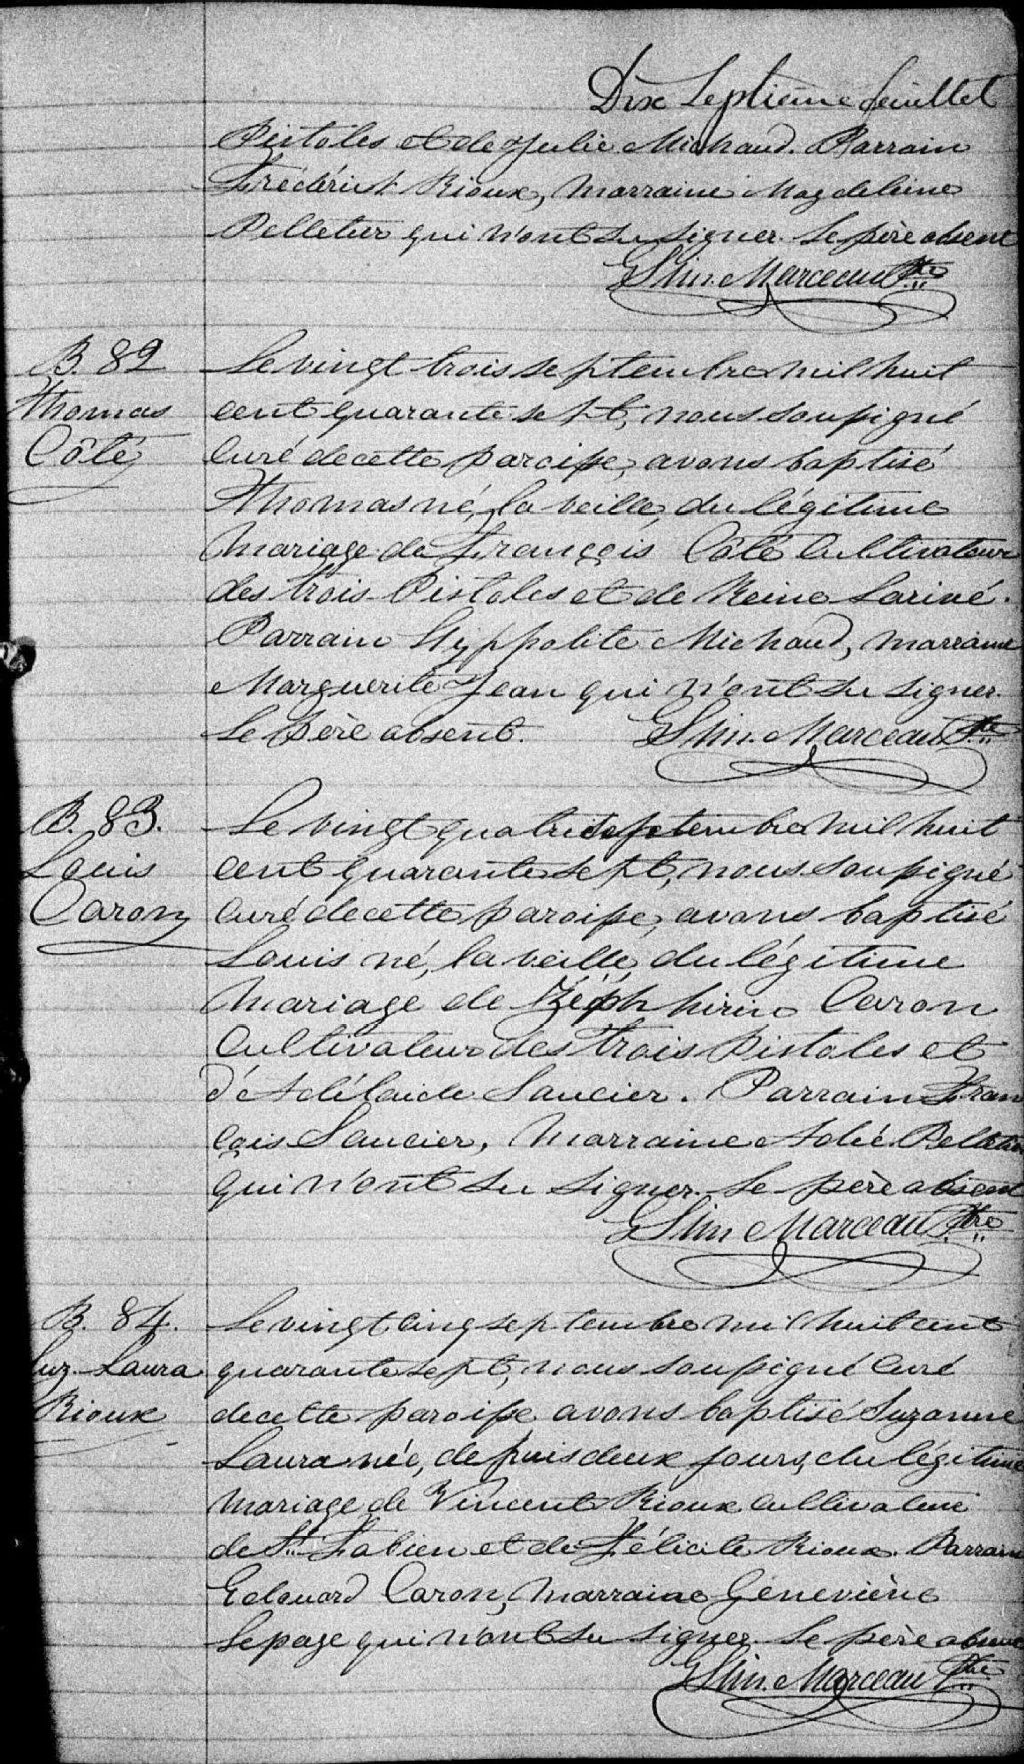 Dix Septième feuillet
Pistoles et de Julie Michaud. Parrain
Frédérick Rioux, Marraine Magdeleine
Pelletier qui n'ont su signer. Le père absent
Marceau Ptre
B. 82 Le vingt trois septembre mil huit
Thomas cent quarante sept, nous soussigné
Côté Curé de cette paroisse, avons baptisé
Thomas né, la veille, du légitime
Mariage de François Côté Cultivateur
des trois Pistoles et de Reine
Parrain Hyppolite Michaud, marraine
Marguerite Jean qui n'ont su signer.
Le père absent. Marceau Ptre
B. 83. Le vingt quatre septembre mil huit
Louis cent quarante sept, nous soussigné
Caron Curé de cette paroisse, avons baptisé
Louis né, la veille, du légitime
Mariage de Zéphirin Caron
Cultivateur des trois Pistoles et
d'Adélaide Saucier. Parrain Fran
çois Saucier, Marraine Pelletier
qui n'ont su signer. Le père absent
Marceau Ptre
B. 84. Le vingt cinq septembre mil huit cent
Suz-Laura quarante sept, nous soussigné Curé
Rioux de cette paroisse avons baptisé Suzanne
Laura née, depuis deux jours, du légitime
Mariage de Vincent Rioux Cultivateur
de St. Fabien et de Félicité Rioux. Parrain
Edouard Caron, Marraine Geneviève
Lepage qui n'ont su signer. Le père absent
Marceau Ptre